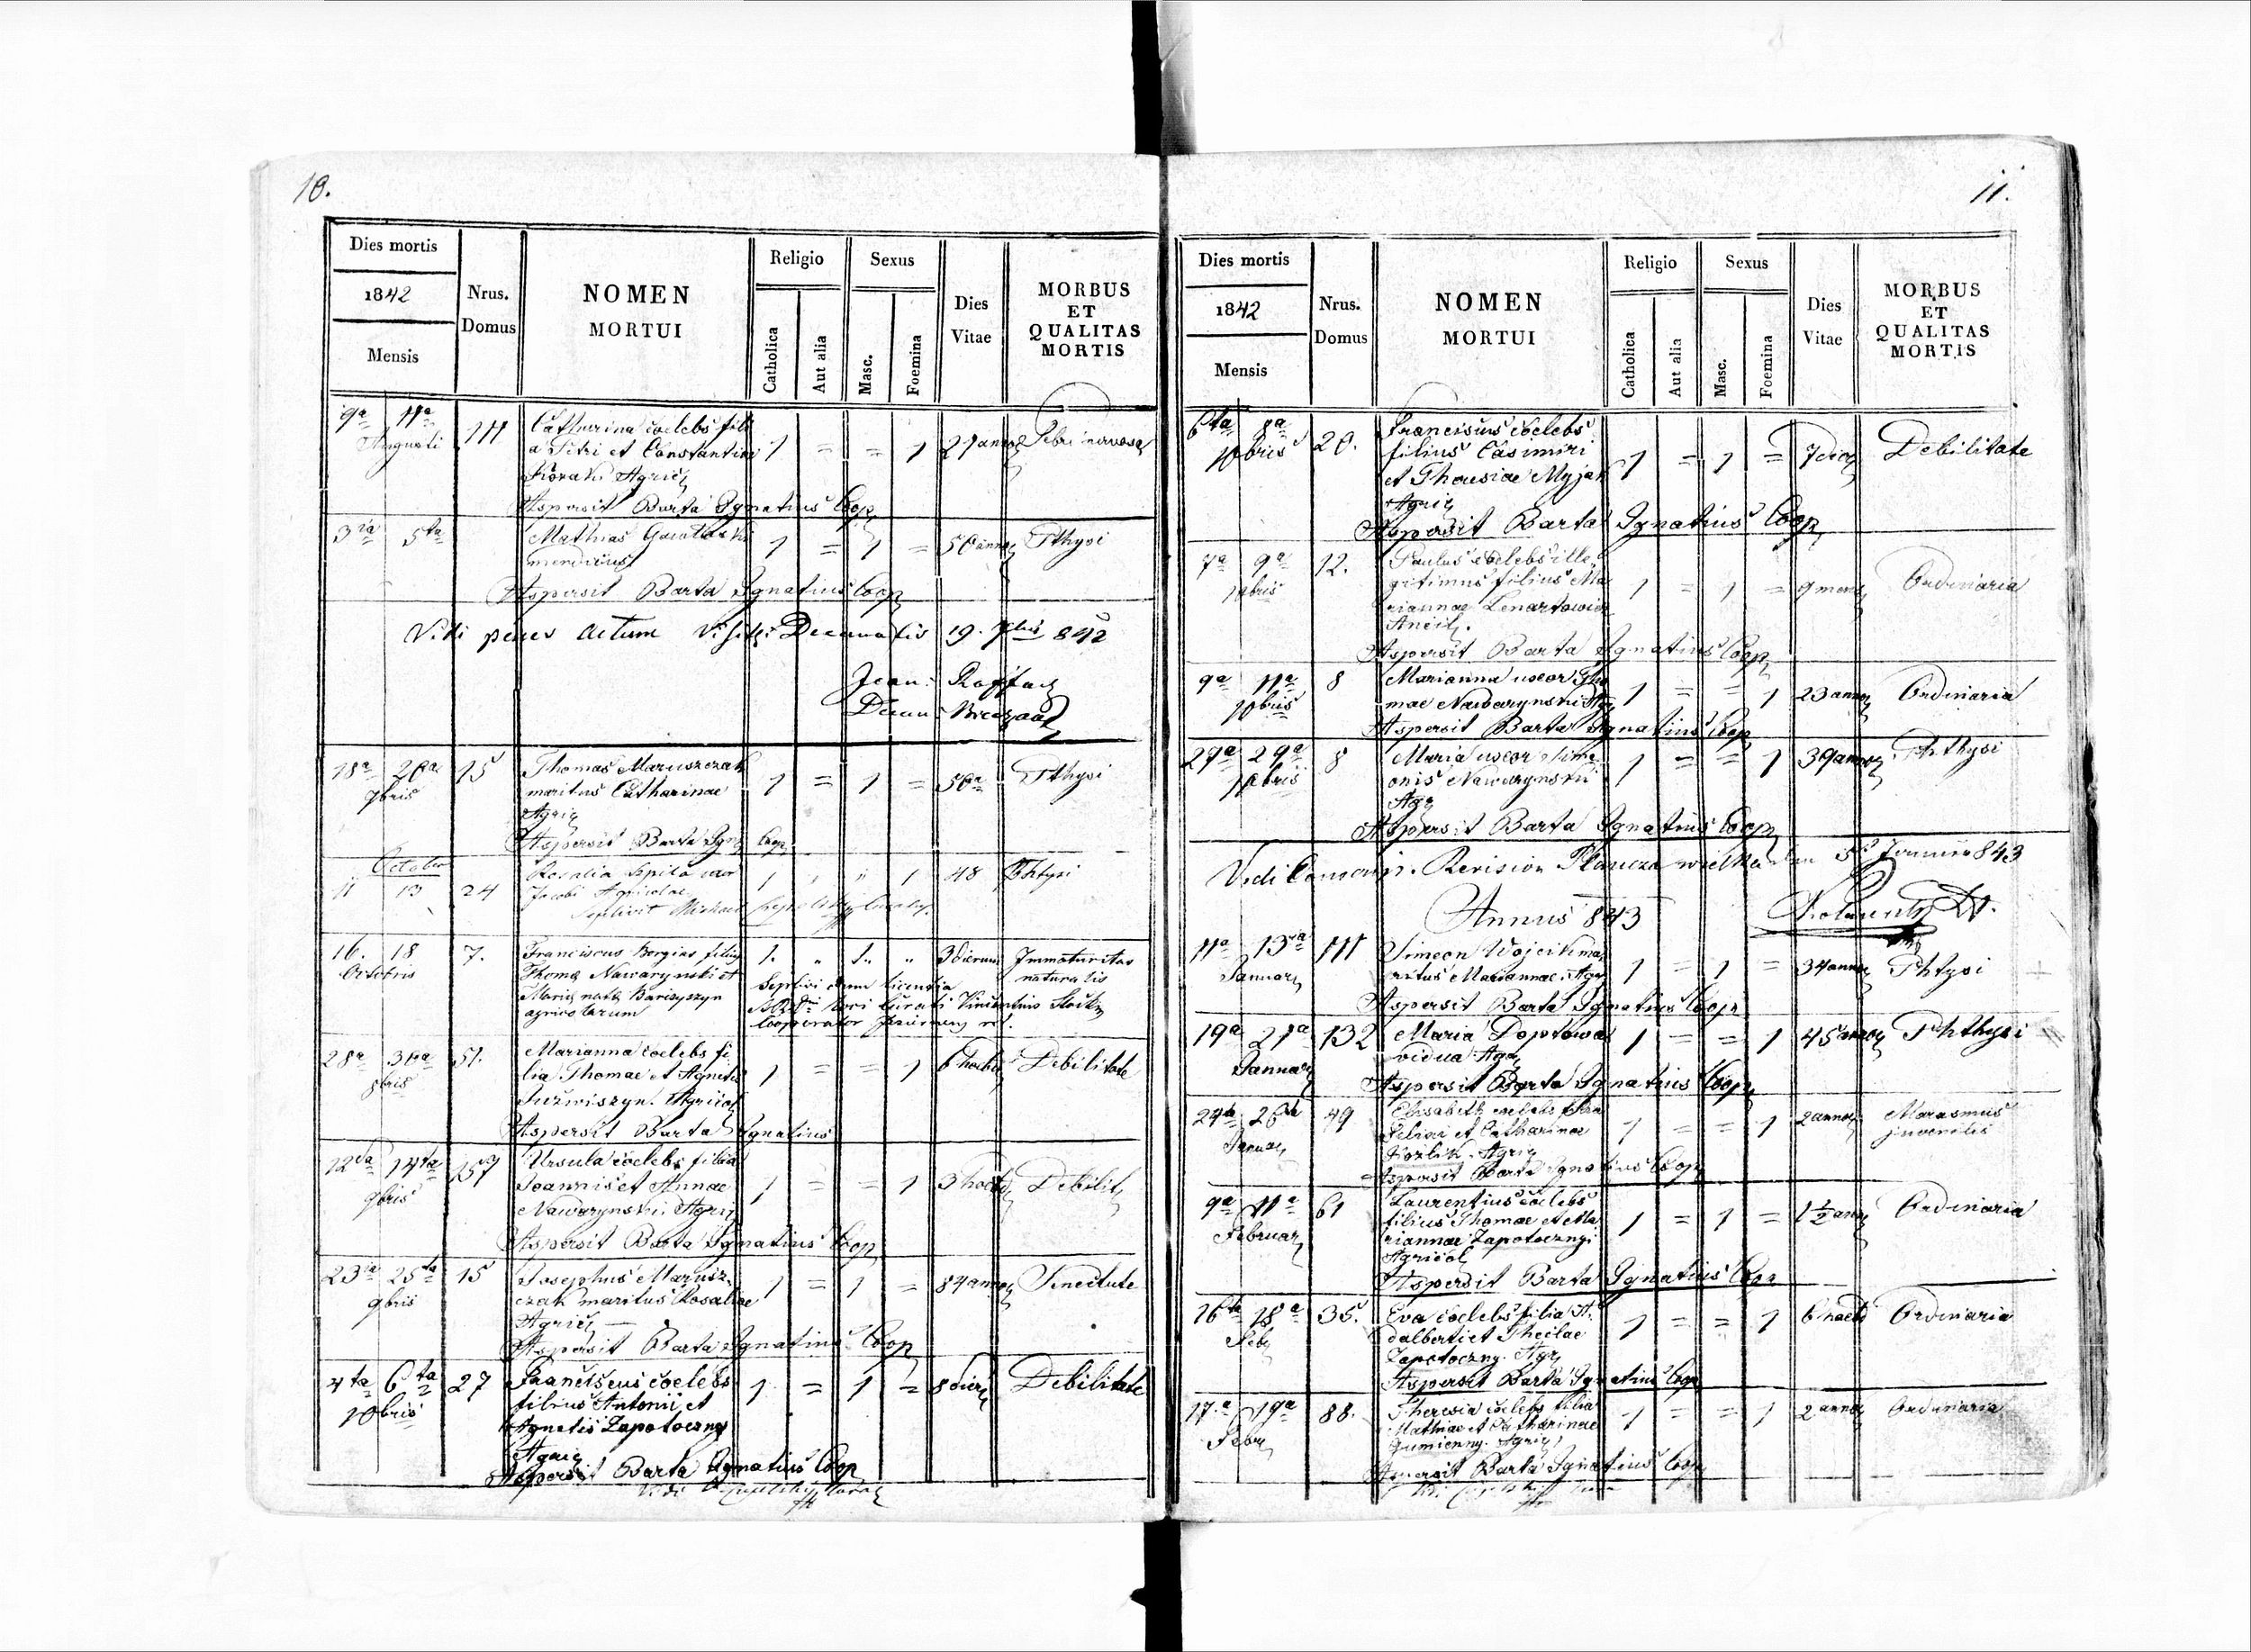 10.
Dies mortis
1842
Mensis
Nrus.
Domus
NOMEN
MORTUI
Religio
Catholica
Aut alia
Sexus
Masc.
Foemina
Dies
Vitae
MORBUS
ET
QUALITAS
MORTIS
9a 11a 111 Catharina coelebs fili
Augusti a Petri et Constantiae 1 = = 1 27 annor Febri nervosa
Agric
Aspersit Barta Ignatius Coop
3ia 5ta Mathias 1 = 1 = 50 annor Pthysi
mendicus
Aspersit Barta Ignatius Coop
Vidi penes actum Visit: Decanalis 19. 7bris 842
Joan:
Decan:
18a 20a 15 Thomas Maruszczak
7bris maritus Catharinae 1 = 1 = 50a Pthysi
Agric
Aspersit Barta Ign Coop
October
Rosalia uxor
11 13 24 Jacobi Agricolae 1 1 48 Phtysi
Sepelivit Michael
16. 18 7. Franciscus Borgias filius 1. " 1. " 3 dierum Immaturitas
Octobris Thoma Nawarynski et naturalis
Maria nata Barczyszyn
agricolarum
Sepelivi cum licentia
loci Curati Vincentius
Cooperator
28a 30a 51. Marianna coelebs fi
8bris lia Thomae et Agnetis 1 = = 1 6 hebd Debilitate
Agricol
Aspersit Barta Ignatius
12da 14ta 157 Ursula coelebs filia
9bris Joannis et Annae 1 = = 1 3 hebd Debilit
Nawarynski Agric
Aspersit Barta Ignatius Coop
23ia 25ta 15 Josephus Marusz-
9bris czak maritus Rosaliae 1 = 1 = 84 annor Senectute
Agric
Aspersit Barta Ignatius Coop
4ta 6ta 27 Franciscus coelebs
10bris filius Antonii et 1 = 1 = 8 dier Debilitate
Agnetis Zapotoczny
Agric
Aspersit Barta Ignatius Coop
Vidi
11.
Dies mortis
1842
Mensis
Nrus.
Domus
NOMEN
MORTUI
Religio
Catholica
Aut alia
Sexus
Masc.
Foemina
Dies
Vitae
MORBUS
ET
QUALITAS
MORTIS
6ta 8a 20. Franciscus coelebs
10bris filius Casimiri 1 = 1 = 7 dier Debilitate
et Myjak
Agric
Aspersit Barta Ignatius Coop
7a 9a 12. Paulus coelebs ille-
10bris gitimus filius Ma 1 = 1 = 9 mens Ordinaria
riannae Lenartowicz
Ancil.
Aspersit Barta Ignatius Coop
9a 11a 8 Marianna uxor Tho
10bris mae Nawarynski Agr 1 = = 1 23 annor Ordinaria
Aspersit Barta Ignatius Coop
27a 29a 8 Maria uxor Sime
10bris onis Nawarynski 1 = = 1 39 annor Phthysi
Agr
Aspersit Barta Ignatius Coop
Vidi Revision Płaucza wielka 843
Annus 843
11a 13a 111 Simeon Wojcik ma
Januar ritus Mariannae Agr 1 = 1 = 34 annor Phtysi
Aspersit Barta Ignatius Coop
19a 21a 132 Maria Doptowa
Januar vidua Agr 1 = = 1 45 annor Phthysi
Aspersit Barta Ignatius Coop
24ta 26ta 49 Elisabeth coelebs filia
Januar et Catharinae 1 = = 1 2 annor Marasmus
Kozlik. Agric juvenilis
Aspersit Barta Ignatius Coop
9a 11a 61 Laurentius coelebs
Februar filius Thomae et Ma 1 = 1 = 1 1/2 ann Ordinaria
riannae Zapotocznyi
Agricol
Aspersit Barta Ignatius Coop
16ta 18a 35. Eva coelebs filia A-
Feb dalberti et Theclae 1 = = 1 6 hebd Ordinaria
Zapotoczny. Agr
Aspersit Barta Ignatius Coop
17.a 19a 88. Theresia coelebs filia
Febr Mathiae et Catharinae 1 = = 1 2 annor Ordinaria
Gumienny. Agric
Aspersit Barta Ignatius Coop